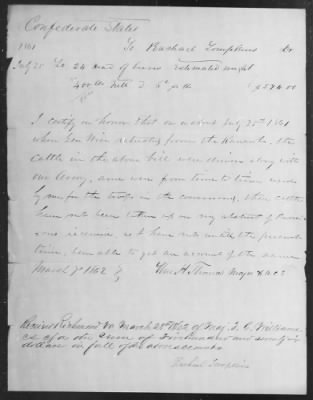 Confederate States
1861 To Rachael Tompkins Dr
July 25 To 24 head of beeves estimated weight
400 lbs nett @ 6¢ per lb $576.00
I certify on honor that on or about July 25th 1861
when Gen Wise retreated from the Kanawha, the
cattle in the above bill were driven along with
our army, and were from time to time used
by me for the troops in the command, these cattle
have not been taken up on my abstract of
I have not until the present
time, been able to get an account of the same
March 7 1862 Wm. H. Thomas Major & A C S
Received Richmond Va March 28th 1862 of Maj. J. C. Williams
the Sum of Five hundred and seventy six
dollars in full of the above account
Rachael Tompkins